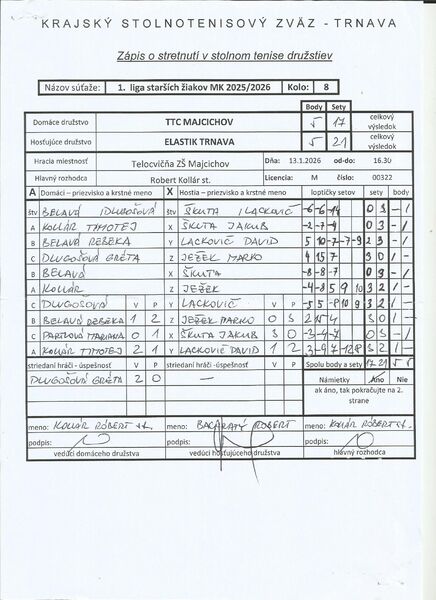 KRAJSKÝ STOLNOTENISOVÝ ZVÄZ - TRNAVA
Zápis o stretnutí v stolnom tenise družstiev
Názov súťaže: 1. liga starších žiakov MK 2025/2026 Kolo: 8
Body Sety
Domáce družstvo TTC MAJCICHOV 5 17 celkový výsledok
Hosťujúce družstvo ELASTIK TRNAVA 5 21 celkový výsledok
Hracia miestnosť Telocvičňa ZŠ Majcichov Dňa: 13.1.2026 od-do: 16.30
Hlavný rozhodca Robert Kollár st. Licencia: M číslo: 00322
A Domáci - priezvisko a krstné meno X Hostia - priezvisko a krstné meno loptičky setov sety body
štv BELAVÁ DLUGOŠOVÁ štv ŠKUTA LACKOVIČ -6 -6 0 3 - 1
A KOLLÁR TIMOTEJ X ŠKUTA JAKUB -2 -7 -9 0 3 - 1
B BELAVÁ REBEKA Y LACKOVIČ DAVID 5 10 -7 -7 -9 2 3 - 1
C DLUGOŠOVÁ GRÉTA Z JEŽEK MARKO 4 15 7 3 0 1 -
B BELAVÁ X ŠKUTA -8 -8 -7 0 3 - 1
A KOLLÁR Z JEŽEK -4 -8 5 9 10 3 2 1 -
C DLUGOŠOVÁ V P Y LACKOVIČ V P -5 5 -8 10 9 3 2 1 -
B BELAVÁ REBEKA 1 2 Z JEŽEK MARKO 0 3 3 0 1 -
C MARIANA 0 1 X ŠKUTA JAKUB 3 0 -3 -4 -7 0 3 - 1
A KOLLÁR TIMOTEJ 2 1 Y LACKOVIČ DAVID 1 2 3 2 1 -
striedaní hráči - úspešnosť V P striedaní hráči - úspešnosť V P Spolu body a sety 17 21 5 5
DLUGOŠOVÁ GRÉTA 2 0 — Námietky Áno Nie
ak áno, tak pokračujte na 2. strane
meno: KOLLÁR RÓBERT st. meno: RÓBERT meno: KOLLÁR RÓBERT st.
podpis: podpis: podpis:
vedúci domáceho družstva vedúci hosťujúceho družstva hlavný rozhodca